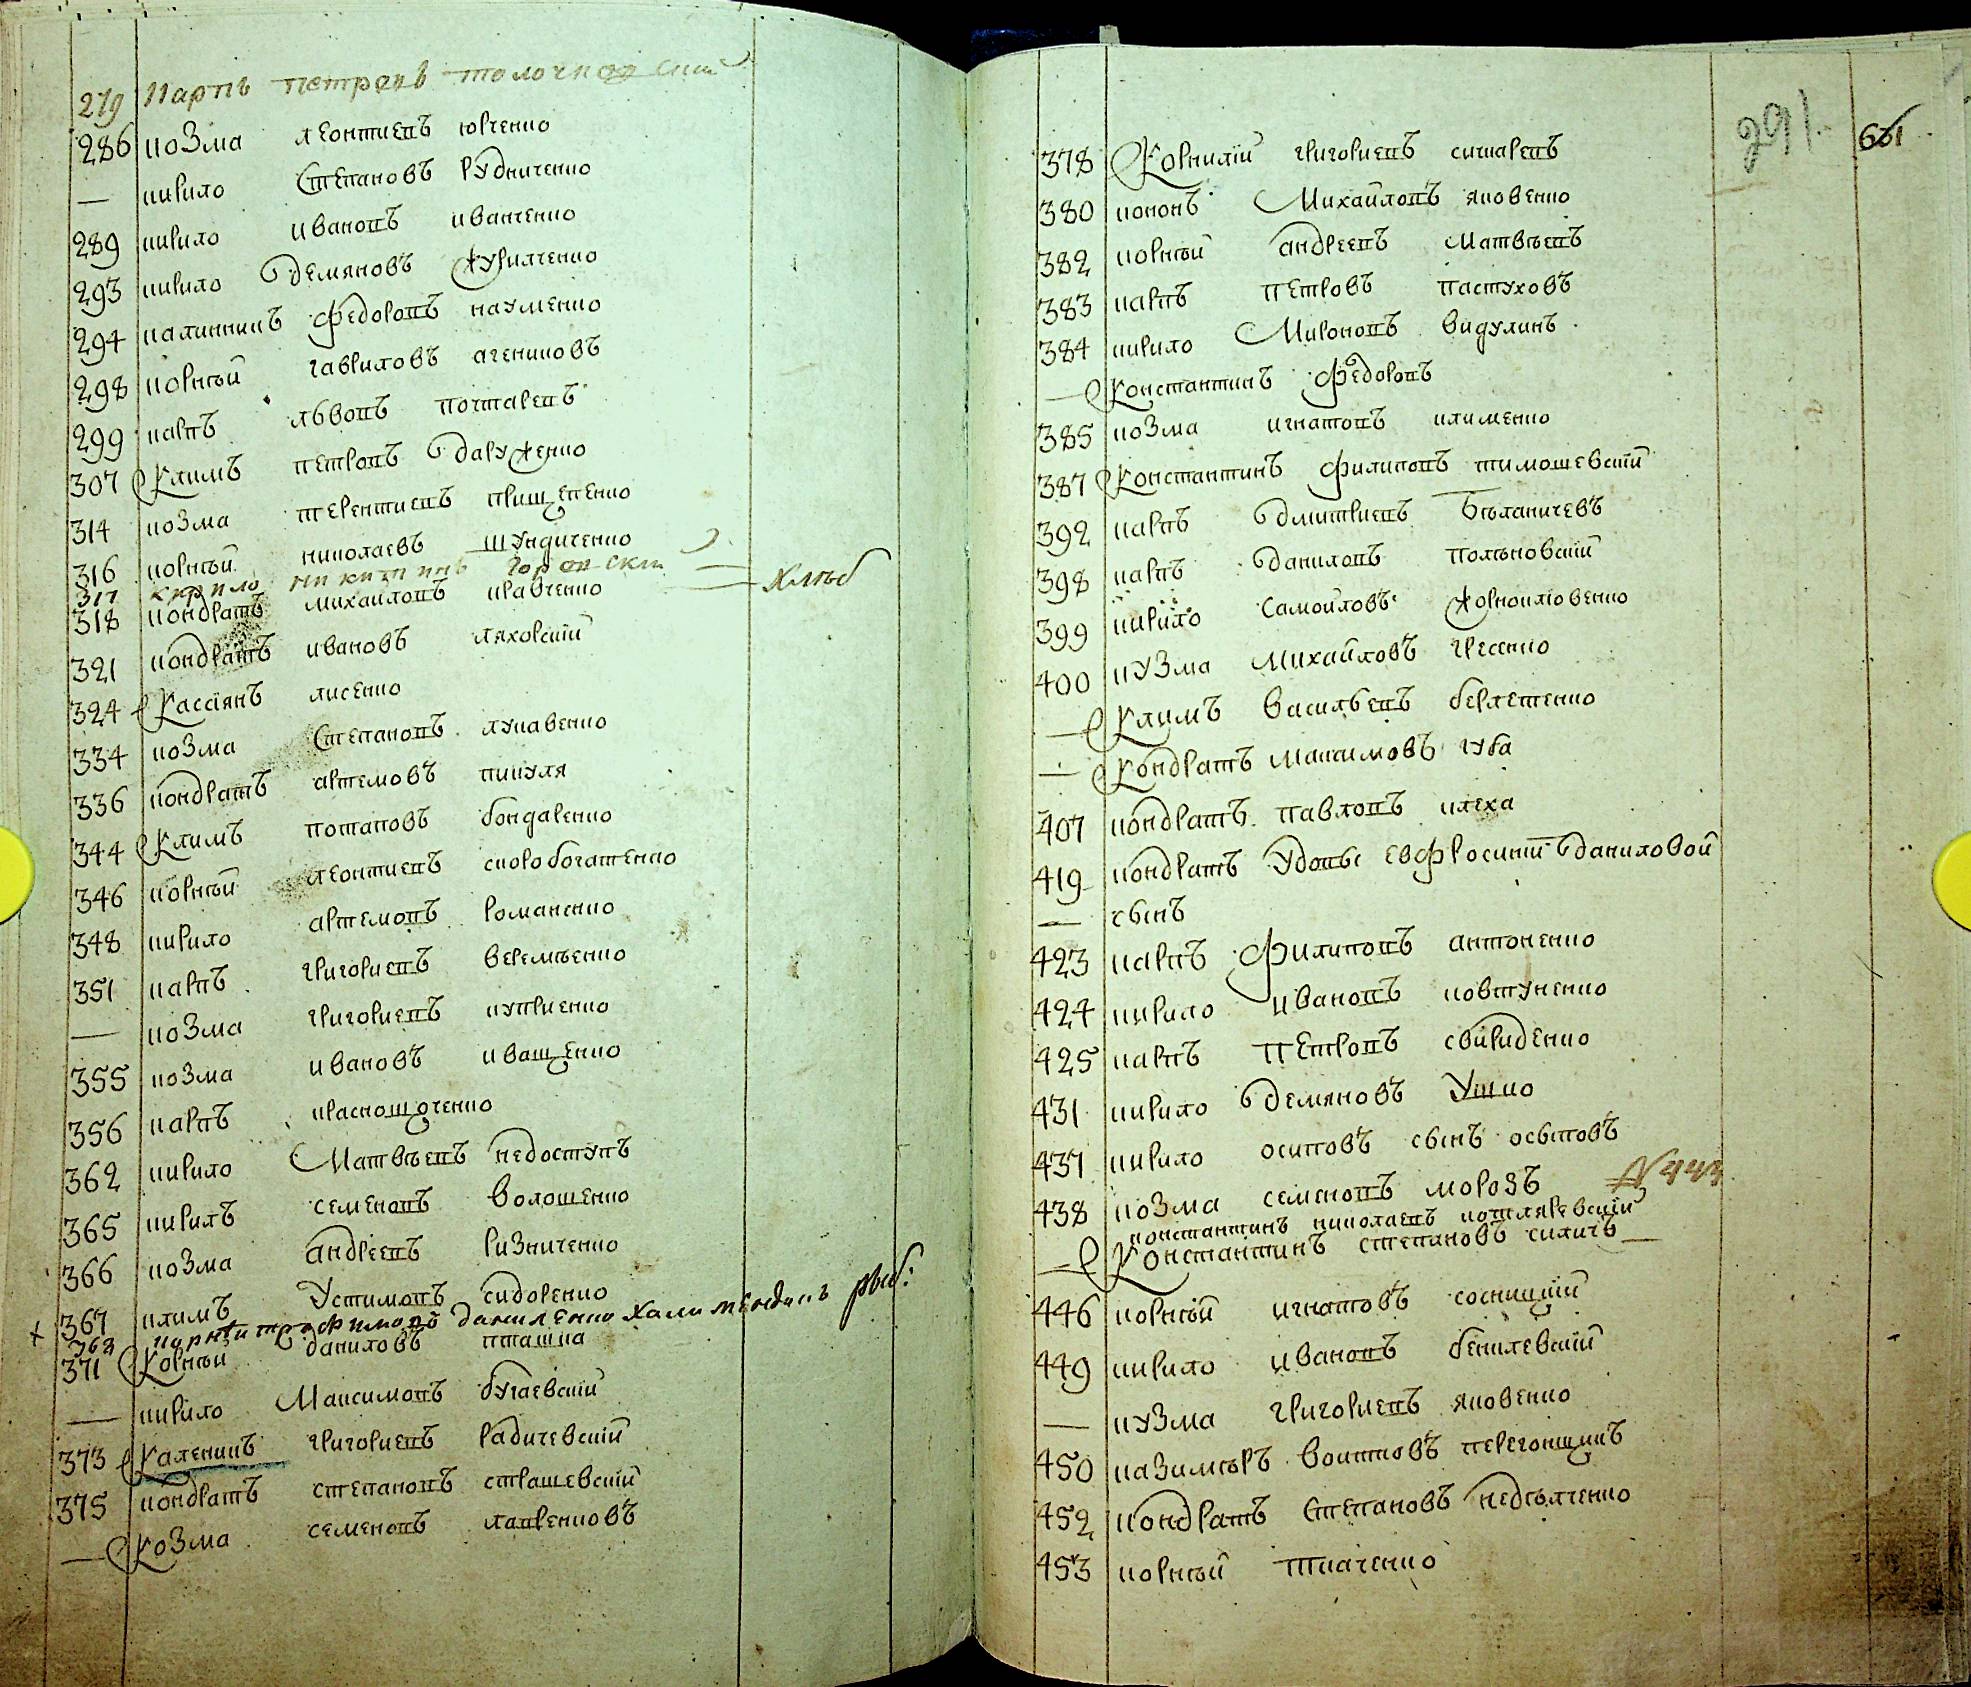 279 Карпъ петровъ толочковскии
286 козма леонтиевъ юрченко
— кирило Степановъ рудниченко
289 кирило ивановъ иванченко
293 кирило демяновъ журилченко
294 калинникъ федоровъ науменко
298 корнѣй гавриловъ агениковъ
299 карпъ лвовъ почтаревъ
307 Климъ петровъ даруженко
314 козма терентиевъ прищепенко
316 корнѣй николаевъ шундиченко
317 кирило никитинъ
318 кондратъ михайловъ кравченко
321 кондратъ ивановъ ляховскій
324 Кассіянъ лисенко
334 козма Степановъ лукавенко
336 кондратъ артемовъ пикуля
344 Климъ потаповъ бондаренко
346 корнѣй леонтиевъ скоробогатенко
348 кирило артемовъ романенко
351 карпъ григориевъ веремѣенко
— козма григориевъ куприенко
355 козма ивановъ иващенко
356 карпъ краснощоченко
362 кирило Матвѣевъ недоступъ
365 кирилъ семеновъ волошенко
366 козма андреевъ ризниченко
367 климъ Устимовъ сидоренко
368 корнѣй трофимовъ даниленко
371 Корнѣй даниловъ пташка
— кирило Максимовъ бугаевскій
373 Каленикъ григориевъ радичевскій
375 кондратъ степановъ страшевскій
— Козма семеновъ лапренковъ
291.
661
378 Корнилій григориевъ ситаревъ
380 кононъ Михайловъ яковенко
382 корнѣй андреевъ матвѣевъ
383 карпъ петровъ пастуховъ
384 кирило Мироновъ видулинъ
— Константинъ федоровъ
385 козма игнатовъ клименко
387 Константинъ филиповъ тимошевскій
392 карпъ дмитриевъ Бѣланичевъ
398 карпъ даниловъ поляновскій
399 кирило самойловъ жорноклювенко
400 кузма Михайловъ гресенко
— Климъ васильевъ берлетенко
— Кондратъ максимовъ губа
407 кондратъ павловъ клеха
419 кондратъ Удовы евфросиніи даниловой
— сынъ
423 карпъ филиповъ антоненко
424 кирило ивановъ ковтуненко
425 карпъ петровъ свириденко
431 кирило демяновъ Ушко
437 кирило осиповъ сынъ осиповъ
438 козма семеновъ морозъ
константинъ николаевъ котляревскій
— Константинъ степановъ силичъ
446 корнѣй игнатовъ сосницкій
449 кирило ивановъ бекилевскій
— кузма григориевъ яковенко
450 казимѣръ воитковъ перегонщикъ
452 кондратъ Степановъ недѣлченко
453 корнѣй ткаченко